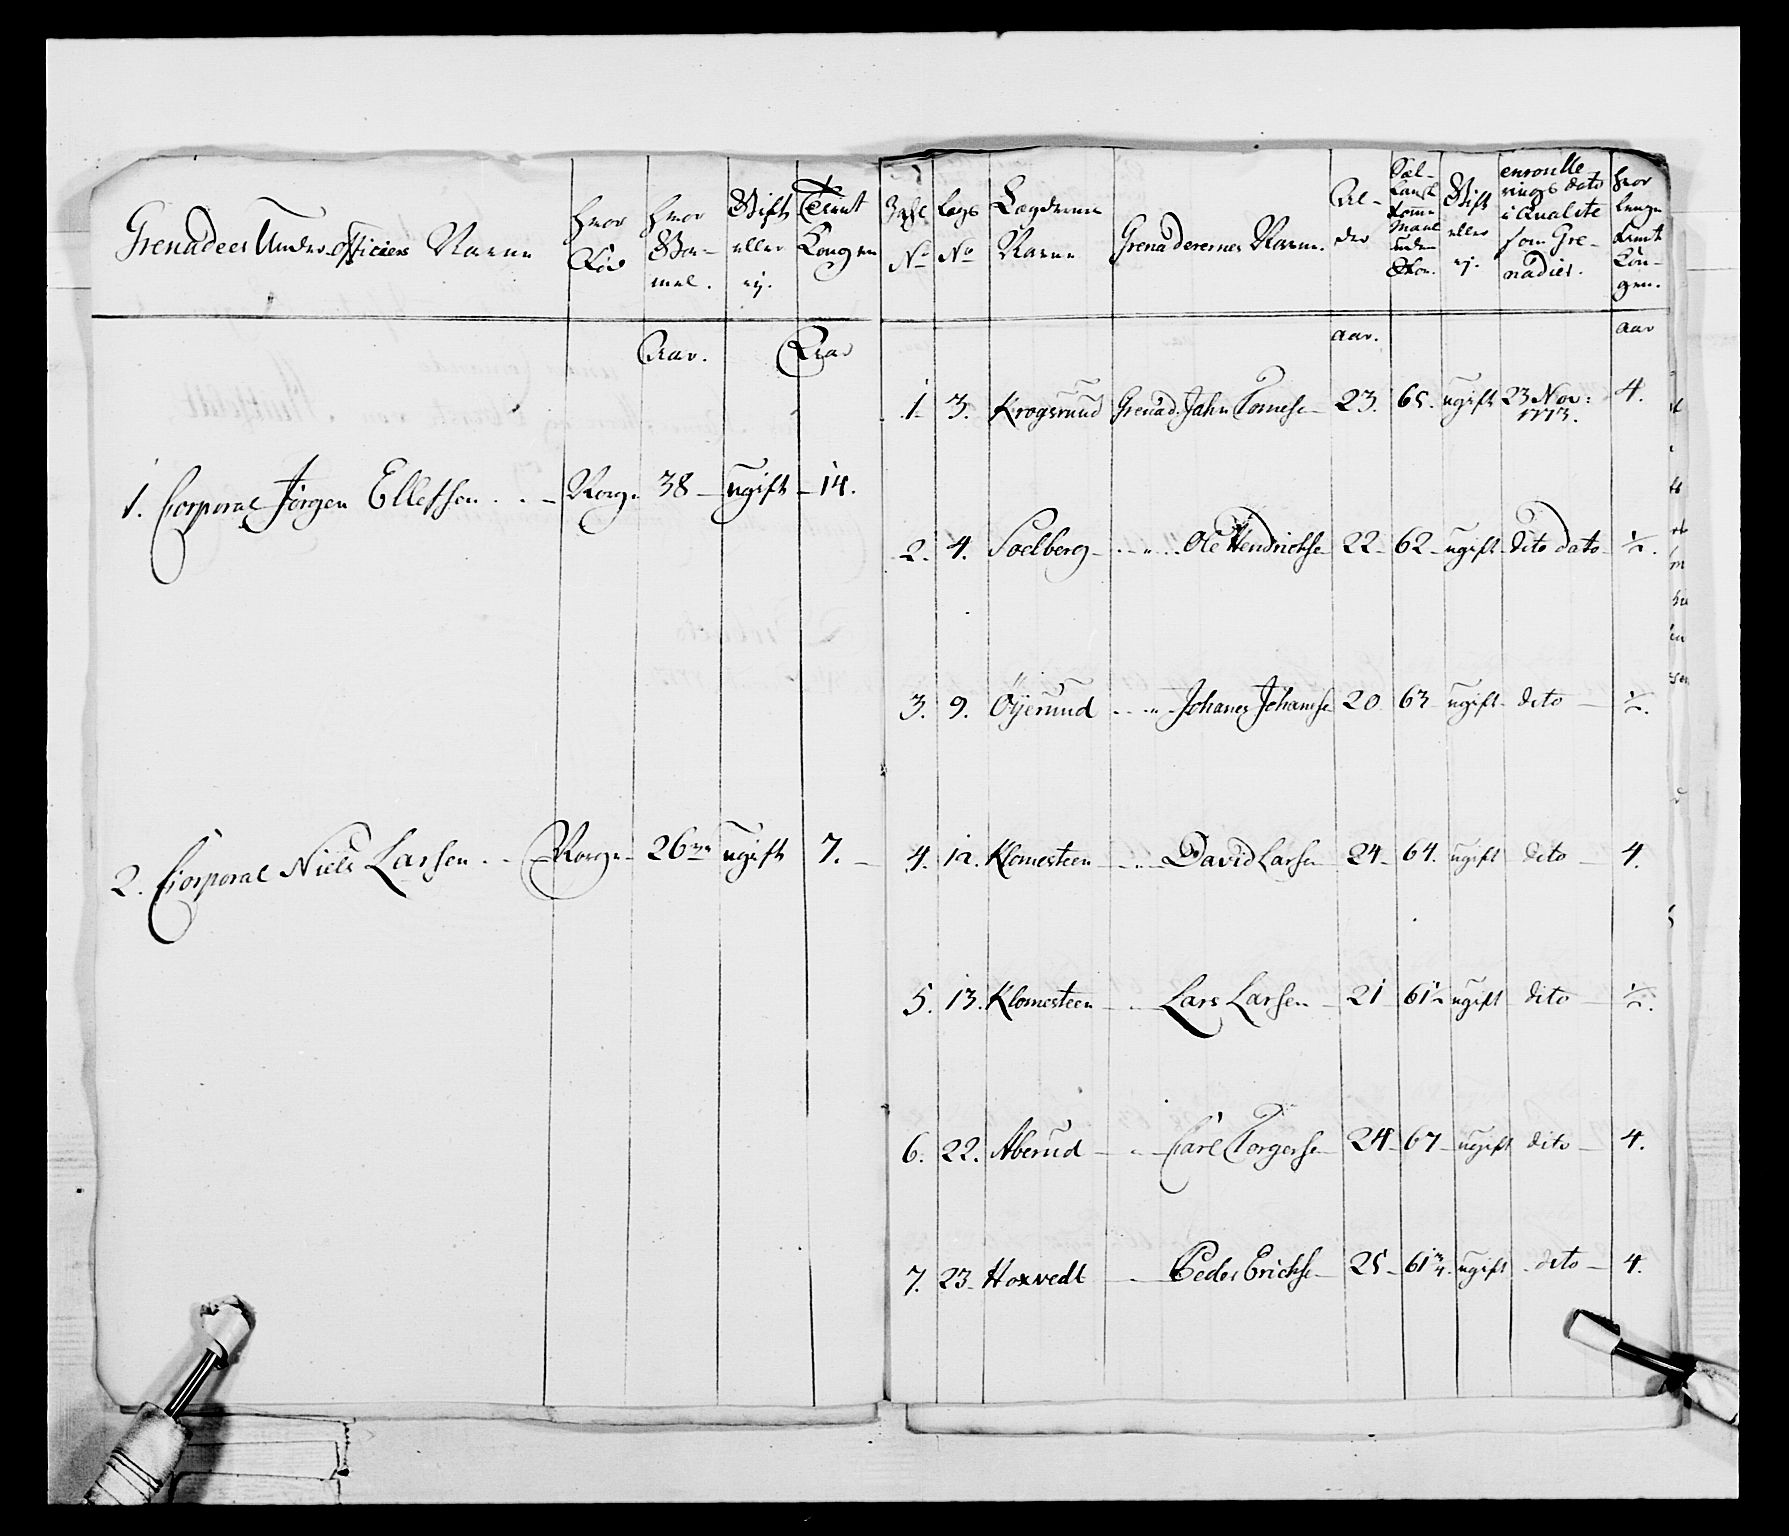 Grenadeer Under officiers Navne
hvor
Fød
hvor
Gam-
mel.
Gift
eller
ej.
Tient
Kongen
Aar.
Aar
1. Corporal Jörgen Ellefsen . . – Norge 38 – ugift – 14.
2. Corporal Niels Larsen . . – Norge – 26 ugift 7. –
No
Legs
No
Lægdernes
Navne
Grenaderernes Navne.
Al-
der
Gift
eller
ej.
enroulle
rings dato
i Qualite
som Gre-
nadier.
hvor
lenge
tient
Kon-
gen.
aar.
aar
1. 3. Krogsrund Grenad. Jahn Tomese – 23. 65. ugift 23 Nov: 4.
1773.
2. 4. Soelberg – . . „ . . Ole Hendrichse 22 – 62 – ugift dito dato – ½.
3. 9. Öijerund . . „ – Johanes Johanse 20 63 – ugift – dito – ½.
4. 12. Klomesteen – „ – David Larsen 24 – 64. ugift dito – 4.
5. 13. Klomesteen – „ – Lars Larsen – 21 – 61½ ugift dito – ½.
6. 22. Aberud – „ – Carl Torgerse – 24 – 67 – ugift dito – 4.
7. 23 – Hoxvedt – Peder Erichse – 25 – 61¾. ugift – dito – 4.